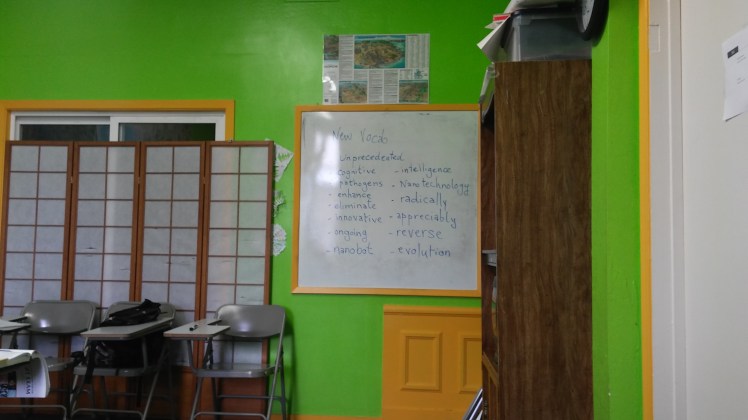 New Vocab
- unprecedented
- cognitive - intelligence
- pathogens - Nanotechnology
- enhance
- eliminate - radically
- innovative - appreciably
- ongoing - reverse
- nanobot - evolution